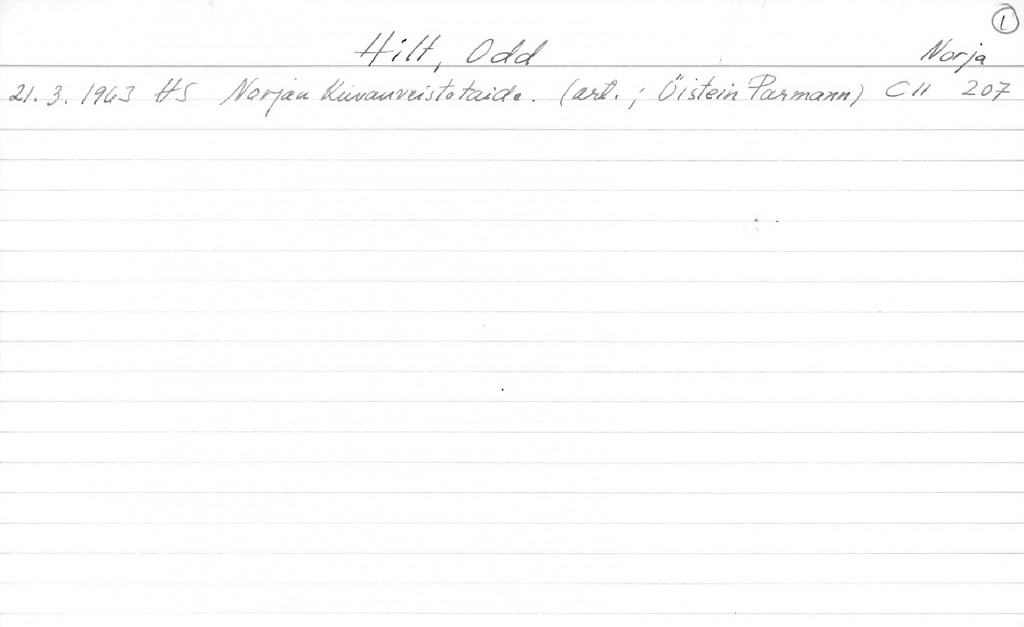 1
Hilt, Odd Norja
21. 3. 1963 HS Norjan Kuvanveistotaide. (art. ; Öistein Parmann) C11 207